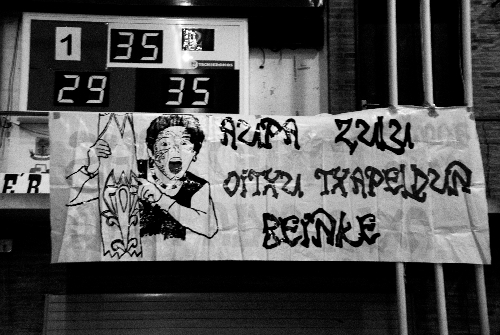 1 35
29 35
AUPA ZULU
OITXU TXAPELDUN
BEINKE